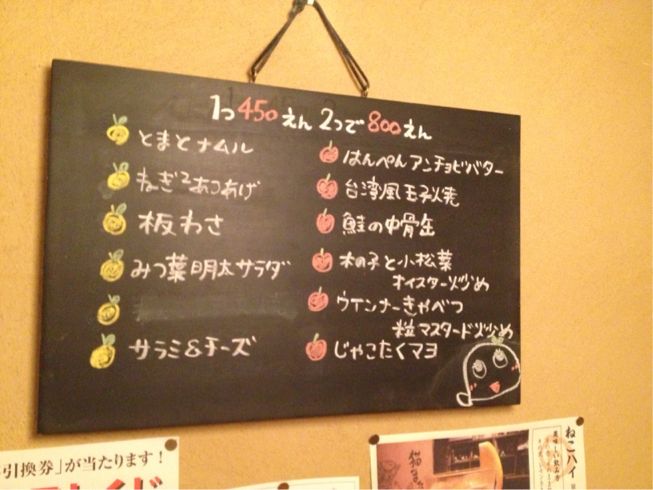 1つ450えん 2つで800えん
とまとナムル
ねぎ2あつあげ
板わさ
みつ葉明太サラダ
サラミ&チーズ
はんぺんアンチョビバター
台湾風玉子焼
鮭の中骨缶
木の子と小松菜
オイスター炒め
ウインナーきゃべつ
粒マスタード炒め
じゃこたくマヨ
引換券」が当たります!
ねこハイ